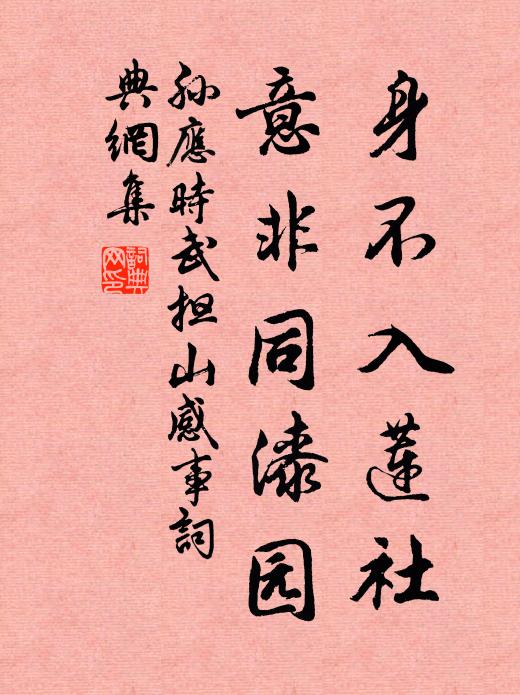 身不入蓮社
意非同漆园
孙應時武担山感事詞
典網集
詞典
网印